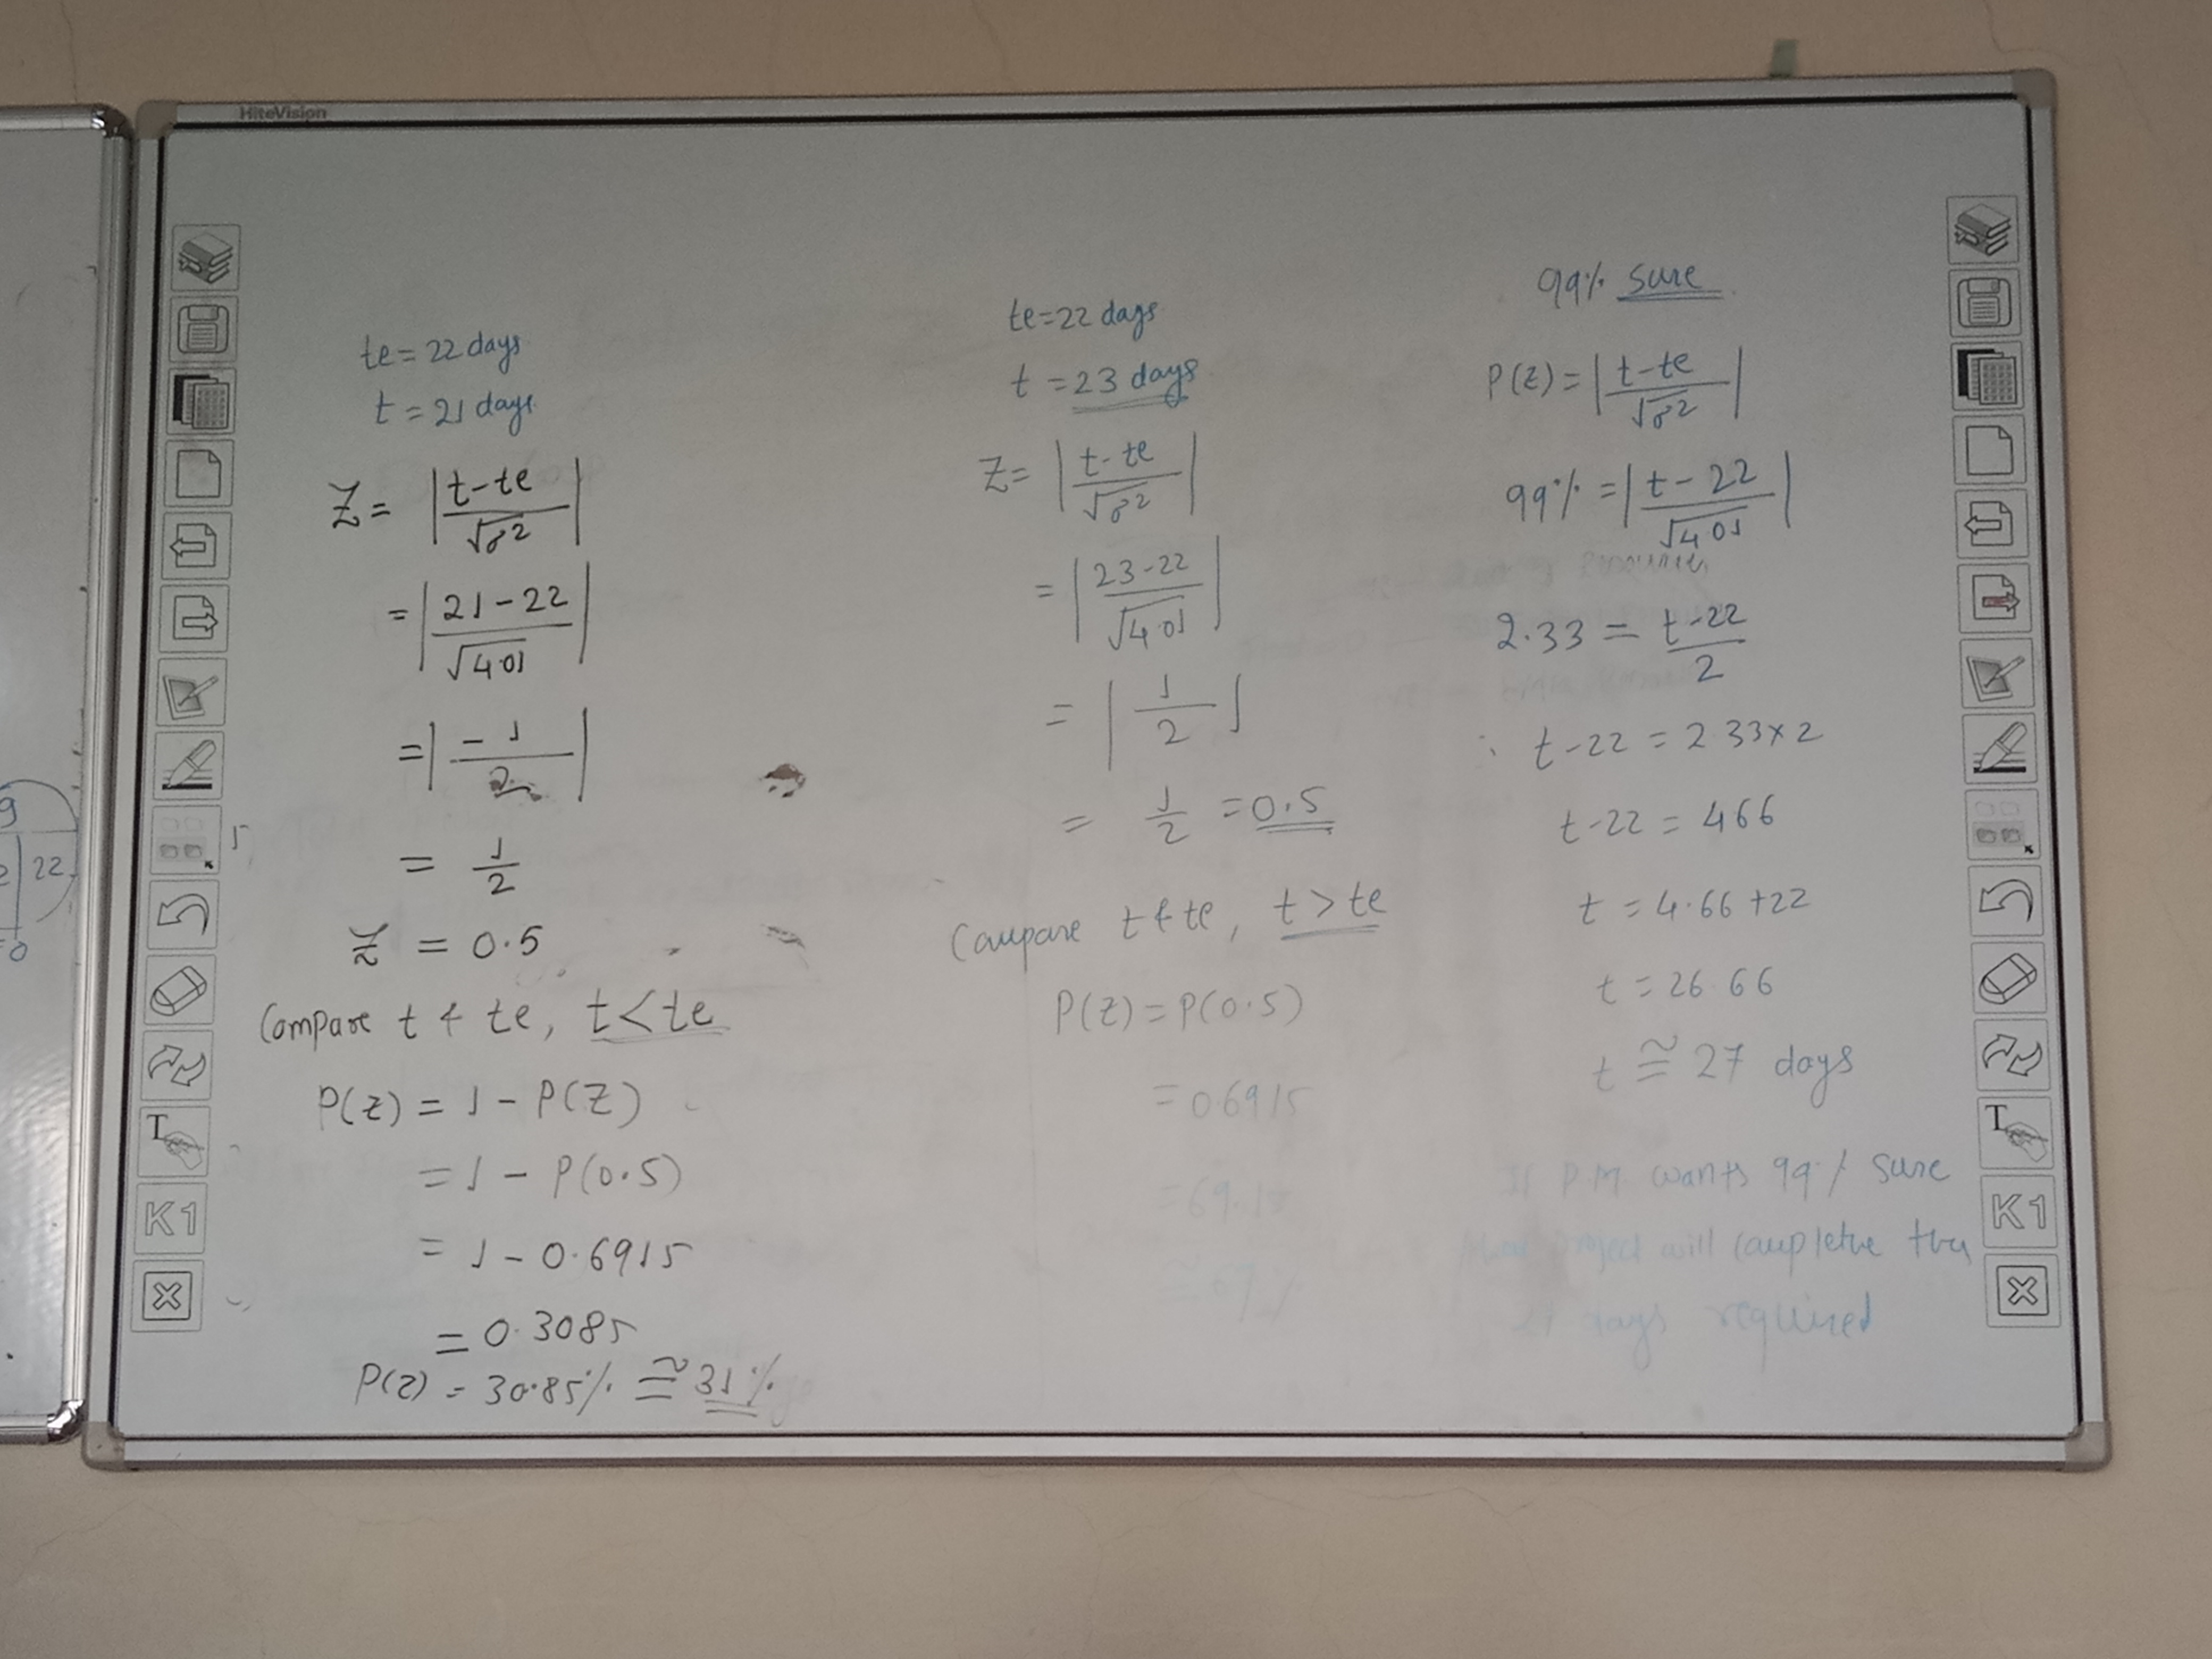 HiteVision
te = 22 days
t = 21 days
Z = |t-te / √σ²|
= |21-22 / √4.01|
= |-1 / 2|
= 1/2
Z = 0.5
Compare t & te, t < te
P(z) = 1 - P(Z)
= 1 - P(0.5)
= 1 - 0.6915
= 0.3085
P(z) = 30.85% ≅ 31%
te = 22 days
t = 23 days
Z = |t-te / √σ²|
= |23-22 / √4.01|
= |1 / 2|
= 1/2 = 0.5
Compare t & te, t > te
P(z) = P(0.5)
= 0.6915
= 69.1
99% sure
P(z) = |t-te / √σ²|
99% = |t-22 / √4.01|
2.33 = t-22 / 2
∴ t-22 = 2.33×2
t-22 = 4.66
t = 4.66+22
t = 26.66
t ≅ 27 days
If P.M. wants 99% sure
project will compleltve
days required
T
K1
T
K1
9
22
0